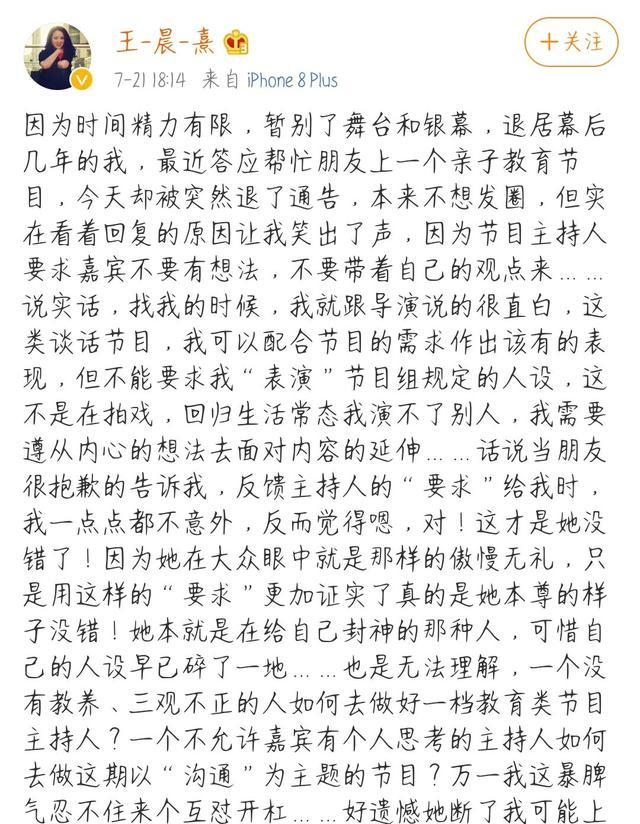 王-晨-熹
+关注
7-21 18:14 来自 iPhone 8 Plus
因为时间精力有限，暂别了舞台和银幕，退居幕后
几年的我，最近答应帮忙朋友上一个亲子教育节
目，今天却被突然退了通告，本来不想发圈，但实
在看着回复的原因让我笑出了声，因为节目主持人
要求嘉宾不要有想法，不要带着自己的观点来……
说实话，找我的时候，我就跟导演说的很直白，这
类谈话节目，我可以配合节目的需求作出该有的表
现，但不能要求我“表演”节目组规定的人设，这
不是在拍戏，回归生活常态我演不了别人，我需要
遵从内心的想法去面对内容的延伸……话说当朋友
很抱歉的告诉我，反馈主持人的“要求”给我时，
我一点点都不意外，反而觉得嗯，对！这才是她没
错了！因为她在大众眼中就是那样的傲慢无礼，只
是用这样的“要求”更加证实了真的是她本尊的样
子没错！她本就是在给自己封神的那种人，可惜自
己的人设早已碎了一地……也是无法理解，一个没
有教养、三观不正的人如何去做好一档教育类节目
主持人？一个不允许嘉宾有个人思考的主持人如何
去做这期以“沟通”为主题的节目？万一我这暴脾
气忍不住来个互怼开杠……好遗憾她断了我可能上